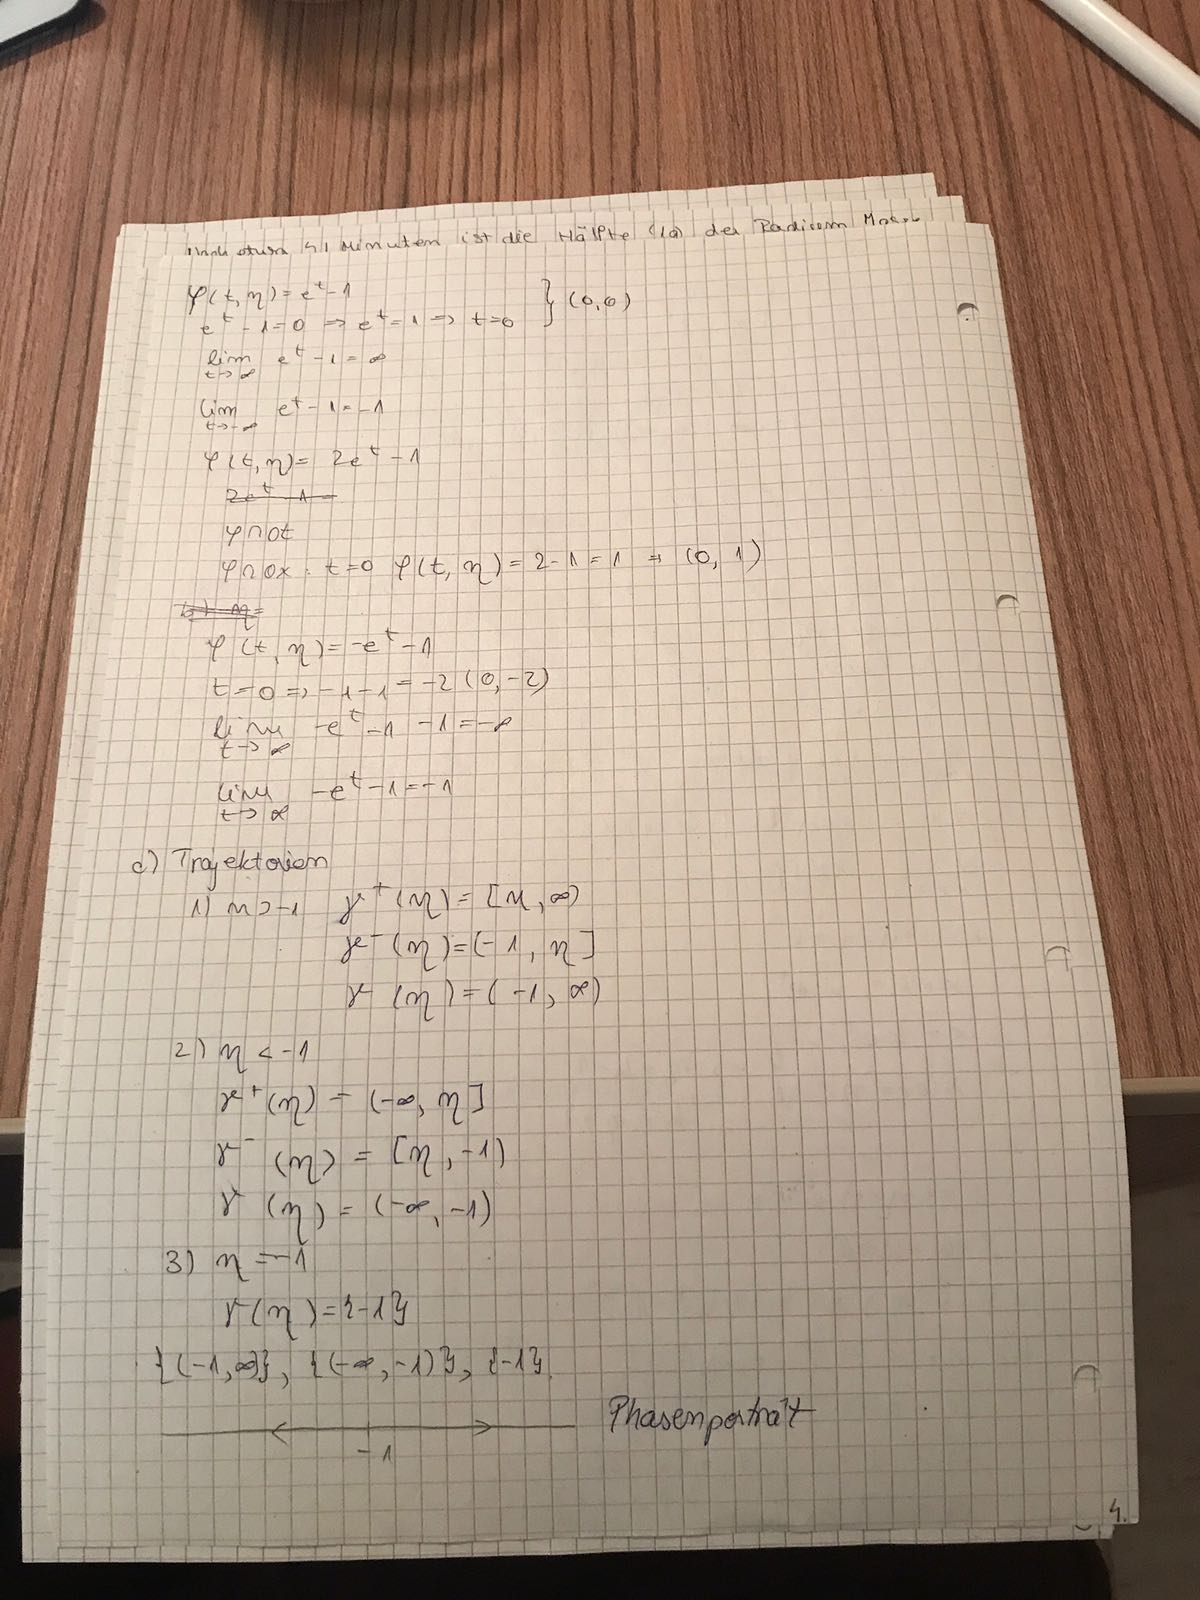 ist die Hälfte (1a) der Radium
φ(t, η) = e^t - 1
e^t - 1 = 0 ⇒ e^t = 1 ⇒ t = 0 } (0,0)
lim t→∞ e^t - 1 = ∞
lim t→-∞ e^t - 1 = -1
φ(t, η) = 2e^t - 1
φ∩0t
φ∩0x: t=0 φ(t, η) = 2-1 = 1 ⇒ (0, 1)
φ(t, η) = -e^t - 1
t=0 ⇒ -1-1 = -2 (0, -2)
lim t→∞ -e^t - 1 -1 = -∞
lim t→∞ -e^t - 1 = -1
c) Trajektorien
1) η > -1 γ^+(η) = [η, ∞)
γ^-(η) = (-1, η]
γ (η) = (-1, ∞)
2) η < -1
γ^+(η) = (-∞, η]
γ^- (η) = [η, -1)
γ (η) = (-∞, -1)
3) η = -1
γ(η) = {-1}
{(-1, ∞)}, {(-∞, -1)}, {-1}
Phasenporträt
-1
4.